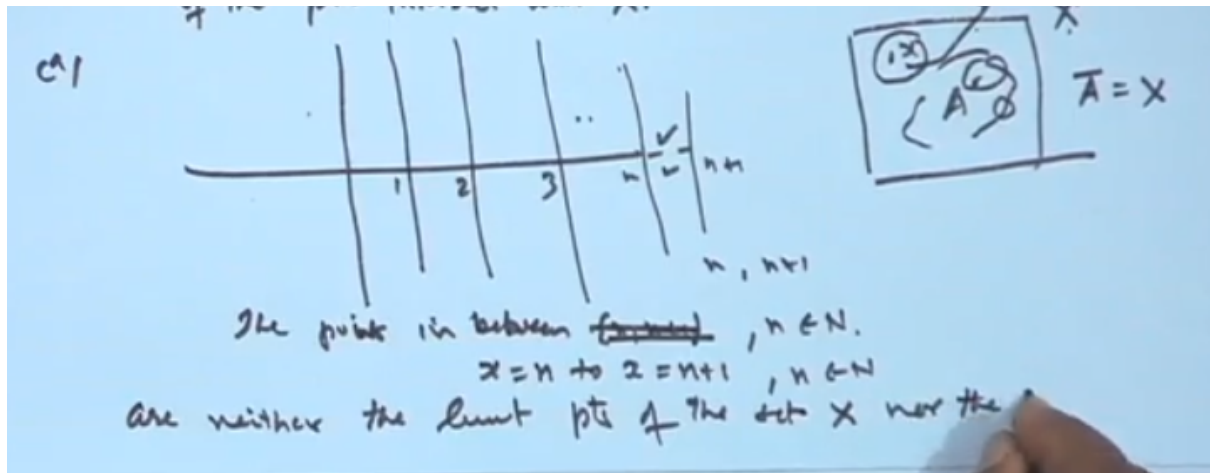 c^n |
X
x
A
Ā = X
1 2 3 .. n n+1
n, n+1
The points in between , n ∈ N.
x = n to x = n+1 , n ∈ N
are neither the limit pts of the set X nor the